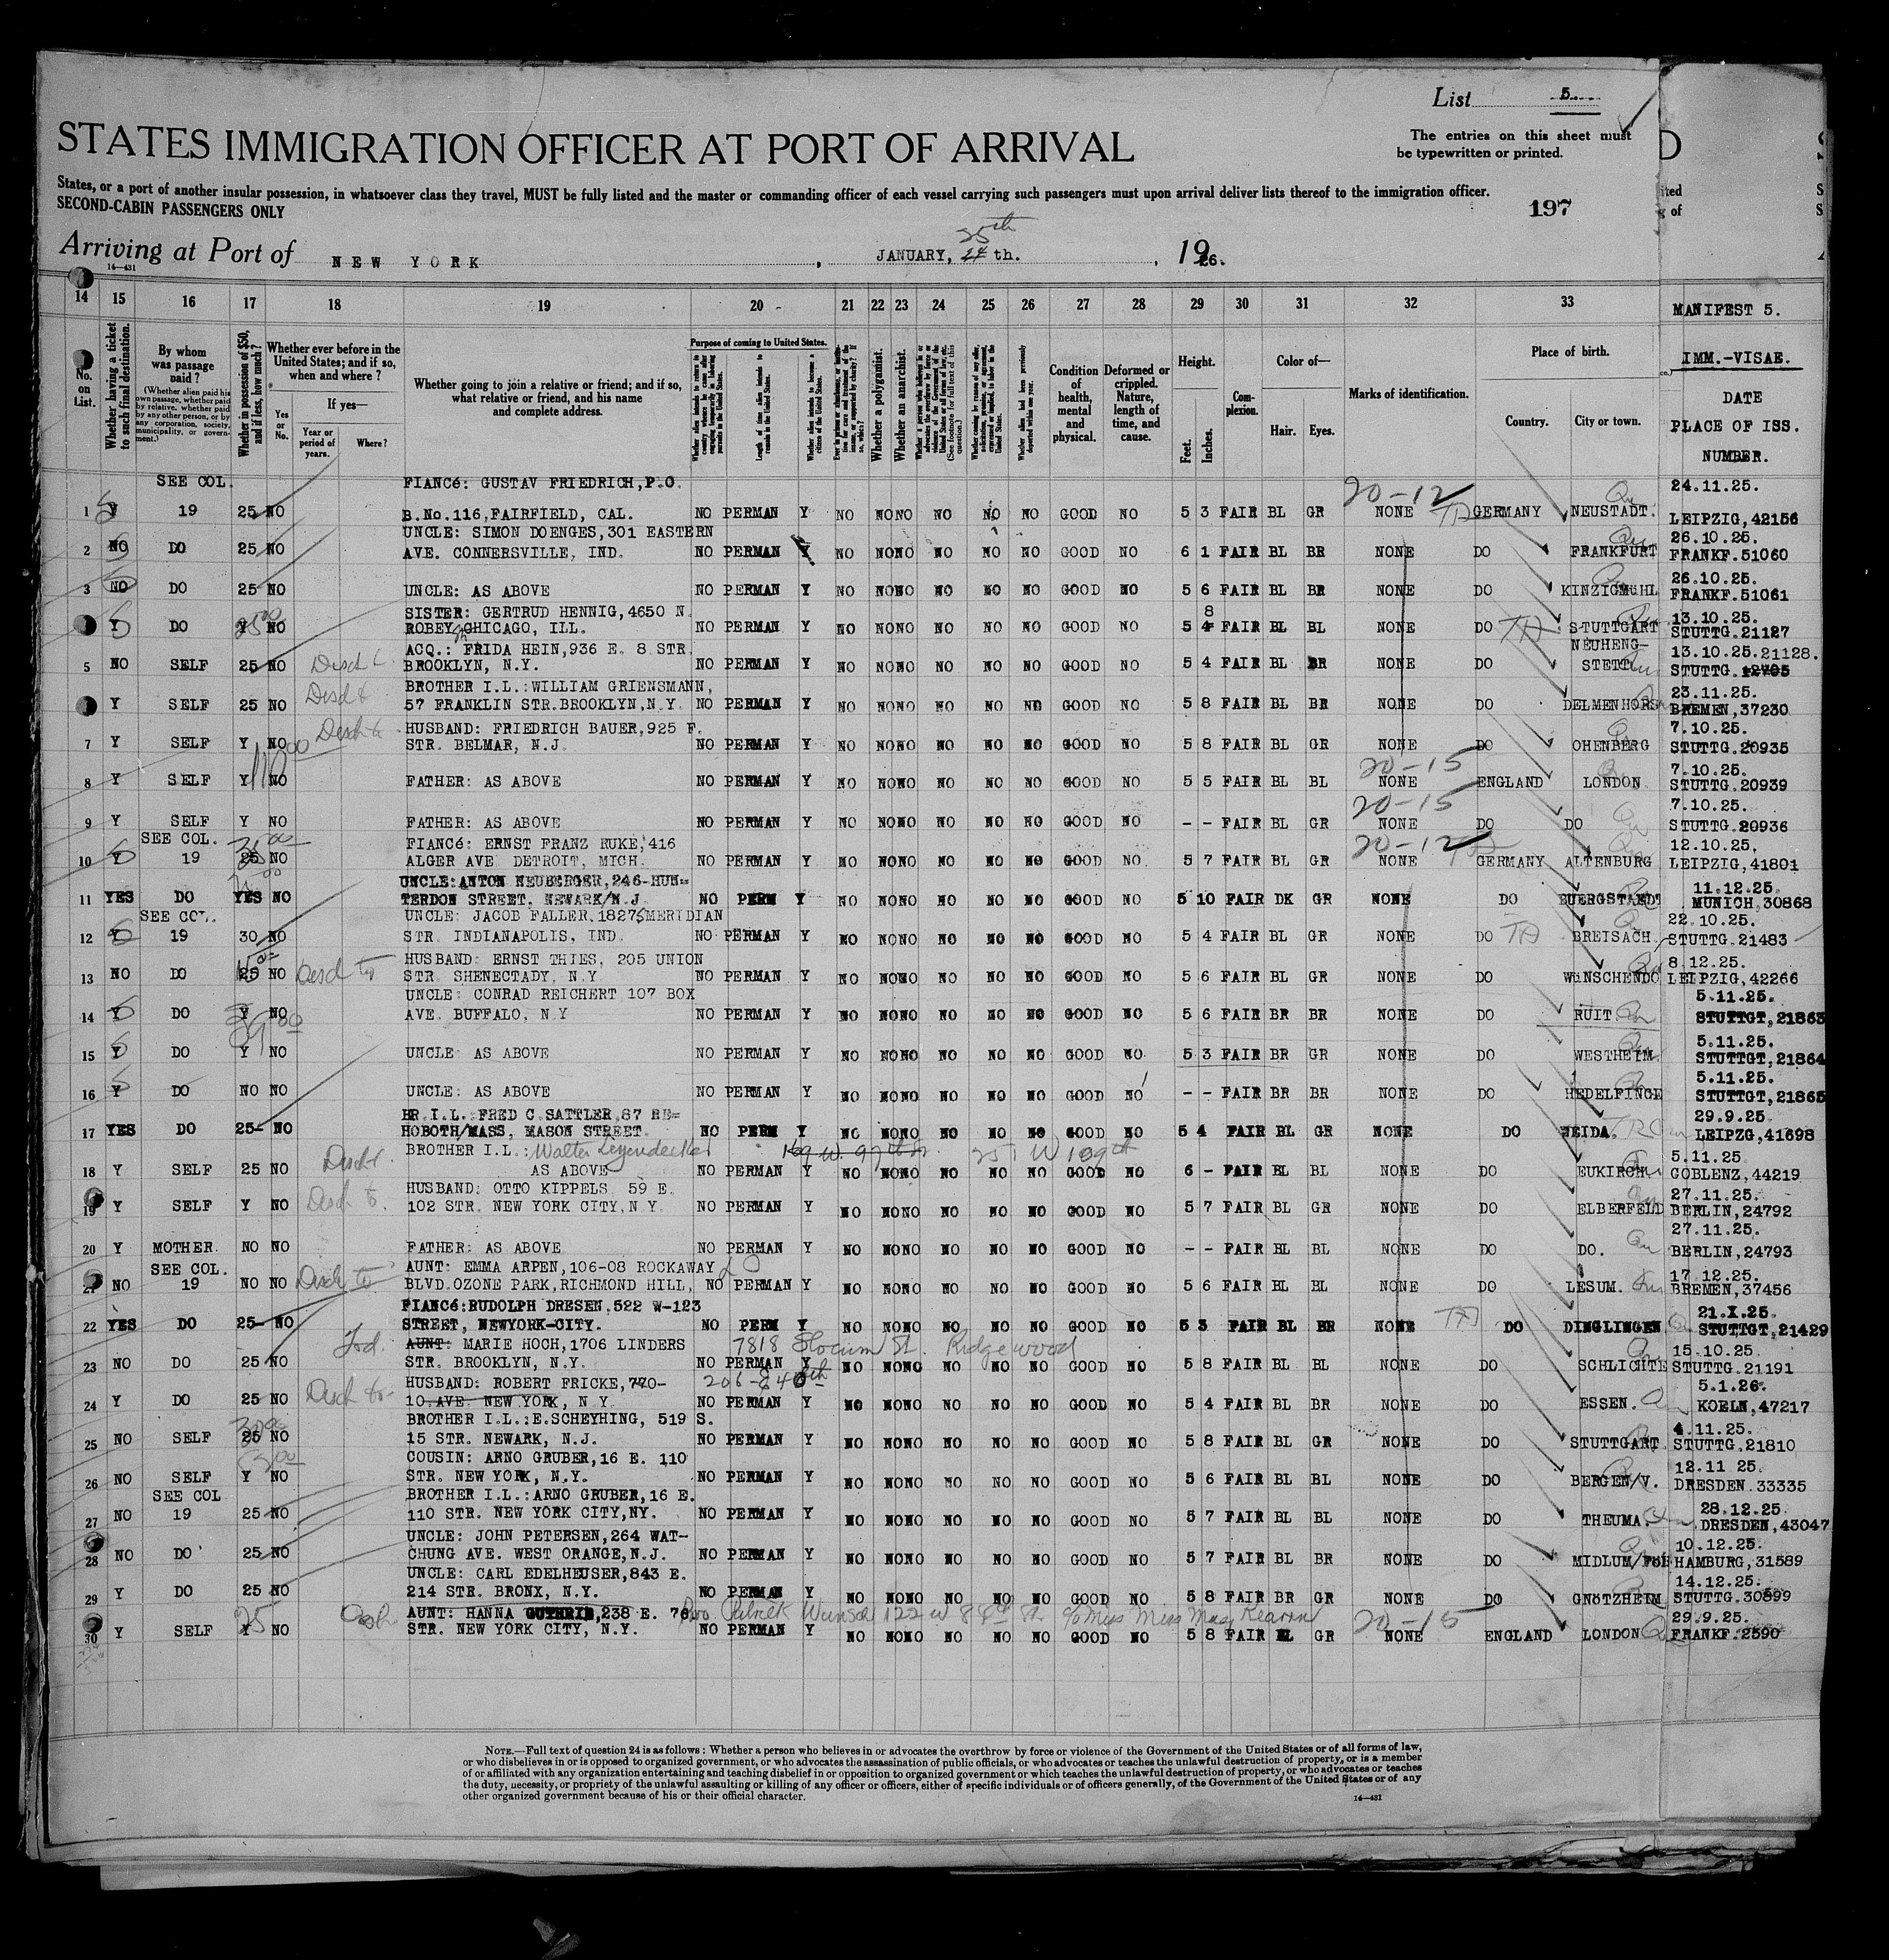 List 5
STATES IMMIGRATION OFFICER AT PORT OF ARRIVAL
The entries on this sheet must
be typewritten or printed.
States, or a port of another insular possession, in whatsoever class they travel, MUST be fully listed and the master or commanding officer of each vessel carrying such passengers must upon arrival deliver lists thereof to the immigration officer.
SECOND-CABIN PASSENGERS ONLY
197
25th
Arriving at Port of NEW YORK, JANUARY, 24 th., 1926.
14—431
14 15 16 17 18 19 20 21 22 23 24 25 26 27 28 29 30 31 32 33
MANIFEST 5.
IMM.-VISAE.
DATE
PLACE OF ISS.
NUMBER.
No. on List.
Whether having a ticket to such final destination.
By whom was passage paid?
(Whether alien paid his own passage, whether paid by relative, whether paid by any other person, or by any corporation, society, municipality, or government.)
Whether in possession of $50, and if less, how much?
Whether ever before in the United States; and if so, when and where?
Yes or No.
If yes—
Year or period of years.
Where?
Whether going to join a relative or friend; and if so, what relative or friend, and his name and complete address.
Purpose of coming to United States.
Length of time alien intends to remain in the United States.
Whether alien intends to become a citizen of the United States.
Whether a polygamist.
Whether an anarchist.
Condition of health, mental and physical.
Deformed or crippled. Nature, length of time, and cause.
Height.
Feet.
Inches.
Complexion.
Color of—
Hair.
Eyes.
Marks of identification.
Place of birth.
Country.
City or town.
SEE COL. FIANCé: GUSTAV FRIEDRICH, P.O. 20-12 24.11.25.
1 Y 19 25 NO B.No.116, FAIRFIELD, CAL. NO PERMAN Y NO NO NO NO NO NO GOOD NO 5 3 FAIR BL GR NONE GERMANY NEUSTADT. LEIPZIG, 42156
UNCLE: SIMON DOENGES, 301 EASTERN 26.10.25.
2 NO DO 25 NO AVE. CONNERSVILLE, IND. NO PERMAN Y NO NO NO NO NO NO GOOD NO 6 1 FAIR BL BR NONE DO FRANKFURT FRANKF. 51060
26.10.25.
3 NO DO 25 NO UNCLE: AS ABOVE NO PERMAN Y NO NO NO NO NO NO GOOD NO 5 6 FAIR BL BR NONE DO KINZIGMüHL FRANKF. 51061
SISTER: GERTRUD HENNIG, 4650 N. 8 13.10.25.
Y DO Y NO ROBEY CHICAGO, ILL. NO PERMAN Y NO NO NO NO NO NO GOOD NO 5 4 FAIR BL BL NONE DO STUTTGART STUTTG. 21127
ACQ.: FRIDA HEIN, 936 E. 8 STR. NEUHENG- 13.10.25. 21128.
5 NO SELF 25 NO BROOKLYN, N.Y. NO PERMAN Y NO NO NO NO NO NO GOOD NO 5 4 FAIR BL BR NONE DO STETT STUTTG. 12705
BROTHER I.L.: WILLIAM GRIENSMANN, 23.11.25.
Y SELF 25 NO 57 FRANKLIN STR. BROOKLYN, N.Y. NO PERMAN Y NO NO NO NO NO NO GOOD NO 5 8 FAIR BL BR NONE DO DELMENHORS BREMEN, 37230
HUSBAND: FRIEDRICH BAUER, 925 F. 7.10.25.
7 Y SELF Y NO STR. BELMAR, N.J. NO PERMAN Y NO NO NO NO NO NO GOOD NO 5 8 FAIR BL GR NONE DO OHENBERG STUTTG. 20935
20-15 7.10.25.
8 Y SELF Y NO FATHER: AS ABOVE NO PERMAN Y NO NO NO NO NO NO GOOD NO 5 5 FAIR BL BL NONE ENGLAND LONDON STUTTG. 20939
20-15 7.10.25.
9 Y SELF Y NO FATHER: AS ABOVE NO PERMAN Y NO NO NO NO NO NO GOOD NO - - FAIR BL GR NONE DO DO STUTTG. 20936
SEE COL. FIANCé: ERNST FRANZ RUKE, 416 20-12 12.10.25.
10 Y 19 25 NO ALGER AVE DETROIT, MICH. NO PERMAN Y NO NO NO NO NO NO GOOD NO 5 7 FAIR BL GR NONE GERMANY ALTENBURG LEIPZIG, 41801
UNCLE: ANTON NEUBERGER, 246-HUN= 11.12.25.
11 YES DO YES NO TERDON STREET. NEWARK/N.J. NO PERM Y NO NO NO NO NO NO GOOD NO 5 10 FAIR DK GR NONE DO BUERGSTAEDT MUNICH 30868
SEE COL. UNCLE: JACOB FALLER, 1827 S MERIDIAN 22.10.25.
12 Y 19 30 NO STR. INDIANAPOLIS, IND. NO PERMAN Y NO NO NO NO NO NO GOOD NO 5 4 FAIR BL GR NONE DO BREISACH STUTTG. 21483
HUSBAND: ERNST THIES, 205 UNION 8.12.25.
13 NO DO 25 NO STR. SHENECTADY, N.Y. NO PERMAN Y NO NO NO NO NO NO GOOD NO 5 6 FAIR BL GR NONE DO WüNSCHENDO LEIPZIG, 42266
UNCLE: CONRAD REICHERT 107 BOX 5.11.25.
14 Y DO Y NO AVE. BUFFALO, N.Y NO PERMAN Y NO NO NO NO NO NO GOOD NO 5 6 FAIR BR BR NONE DO RUIT STUTTGT, 21863
5.11.25.
15 Y DO Y NO UNCLE: AS ABOVE NO PERMAN Y NO NO NO NO NO NO GOOD NO 5 3 FAIR BR GR NONE DO WESTHEIM STUTTGT, 21864
5.11.25.
16 Y DO NO NO UNCLE: AS ABOVE NO PERMAN Y NO NO NO NO NO NO GOOD NO - - FAIR BR BR NONE DO HEDELFINGE STUTTGT, 21865
BR.I.L. FRED C. SATTLER 87 RE= 29.9.25.
17 YES DO 25- NO HOBOTH/MASS, MASON STREET. NO PERM Y NO NO NO NO NO NO GOOD NO 5 4 FAIR BL GR NONE DO WEIDA. LEIPZG, 41698
BROTHER I.L.: Walter Leyendecker 169 W. 97th St. 251 W 109th 5.11.25
18 Y SELF 25 NO AS ABOVE NO PERMAN Y NO NO NO NO NO NO GOOD NO 6 - FAIR BL BL NONE DO EUKIRCH COBLENZ, 44219
HUSBAND: OTTO KIPPELS 59 E. 27.11.25.
19 Y SELF Y NO 102 STR. NEW YORK CITY, N.Y. NO PERMAN Y NO NO NO NO NO NO GOOD NO 5 7 FAIR BL GR NONE DO ELBERFELD BERLIN, 24792
27.11.25.
20 Y MOTHER NO NO FATHER: AS ABOVE NO PERMAN Y NO NO NO NO NO NO GOOD NO - - FAIR BL BL NONE DO DO. BERLIN, 24793
SEE COL. AUNT: EMMA ARPEN, 106-08 ROCKAWAY 17.12.25.
21 NO 19 NO NO BLVD. OZONE PARK, RICHMOND HILL, NO PERMAN Y NO NO NO NO NO NO GOOD NO 5 6 FAIR BL BL NONE DO LESUM. BREMEN, 37456
FIANCé: RUDOLPH DRESEN, 522 W-123 21.X.25.
22 YES DO 25- NO STREET, NEWYORK-CITY. NO PERM Y NO NO NO NO NO NO GOOD NO 5 3 FAIR BL BR NONE DO DINGLINGEN STUTTGT, 21429
AUNT: MARIE HOCH, 1706 LINDERS 7818 Slocum St. Ridgewood 15.10.25.
23 NO DO 25 NO STR. BROOKLYN, N.Y. NO PERMAN Y NO NO NO NO NO NO GOOD NO 5 8 FAIR BL BL NONE DO SCHLICHTE STUTTG. 21191
HUSBAND: ROBERT FRICKE, 770- 5.1.26.
24 Y DO 25 NO 10 AVE. NEW YORK, N.Y. NO PERMAN Y NO NO NO NO NO NO GOOD NO 5 4 FAIR BL BR NONE DO ESSEN. KOELN, 47217
BROTHER I.L.: E. SCHEYHING, 519 S. 4.11.25.
25 NO SELF 25 NO 15 STR. NEWARK, N.J. NO PERMAN Y NO NO NO NO NO NO GOOD NO 5 8 FAIR BL GR NONE DO STUTTGART STUTTG. 21810
COUSIN: ARNO GRUBER, 16 E. 110 12.11 25.
26 NO SELF Y NO STR. NEW YORK, N.Y. NO PERMAN Y NO NO NO NO NO NO GOOD NO 5 6 FAIR BL BL NONE DO BERGEN/V. DRESDEN 33335
SEE COL BROTHER I.L.: ARNO GRUBER, 16 E. 28.12.25
27 NO 19 25 NO 110 STR. NEW YORK CITY, NY. NO PERMAN Y NO NO NO NO NO NO GOOD NO 5 7 FAIR BL BL NONE DO THEUMA. DRESDEN, 43047
UNCLE: JOHN PETERSEN, 264 WAT- 10.12.25.
28 NO DO 25 NO CHUNG AVE. WEST ORANGE, N.J. NO PERMAN Y NO NO NO NO NO NO GOOD NO 5 7 FAIR BL BR NONE DO MIDLUM/FöH HAMBURG, 31589
UNCLE: CARL EDELHEUSER, 843 E. 14.12.25.
29 Y DO 25 NO 214 STR. BRONX, N.Y. NO PERMAN Y NO NO NO NO NO NO GOOD NO 5 8 FAIR BR GR NONE DO GNöTZHEIM STUTTG. 30899
AUNT: HANNA GUTHRIE, 238 E. 76. 20-15 29.9.25.
30 Y SELF Y NO STR. NEW YORK CITY, N.Y. NO PERMAN Y NO NO NO NO NO NO GOOD NO 5 8 FAIR BL GR NONE ENGLAND LONDON FRANKF. 2590
NOTE.—Full text of question 24 is as follows: Whether a person who believes in or advocates the overthrow by force or violence of the Government of the United States or of all forms of law,
or who disbelieves in or is opposed to organized government, or who advocates the assassination of public officials, or who advocates or teaches the unlawful destruction of property, or is a member
of or affiliated with any organization entertaining and teaching disbelief in or opposition to organized government or which teaches the unlawful destruction of property, or who advocates or teaches
the duty, necessity, or propriety of the unlawful assaulting or killing of any officer or officers, either of specific individuals or of officers generally, of the Government of the United States or of any
other organized government because of his or their official character.
14—431